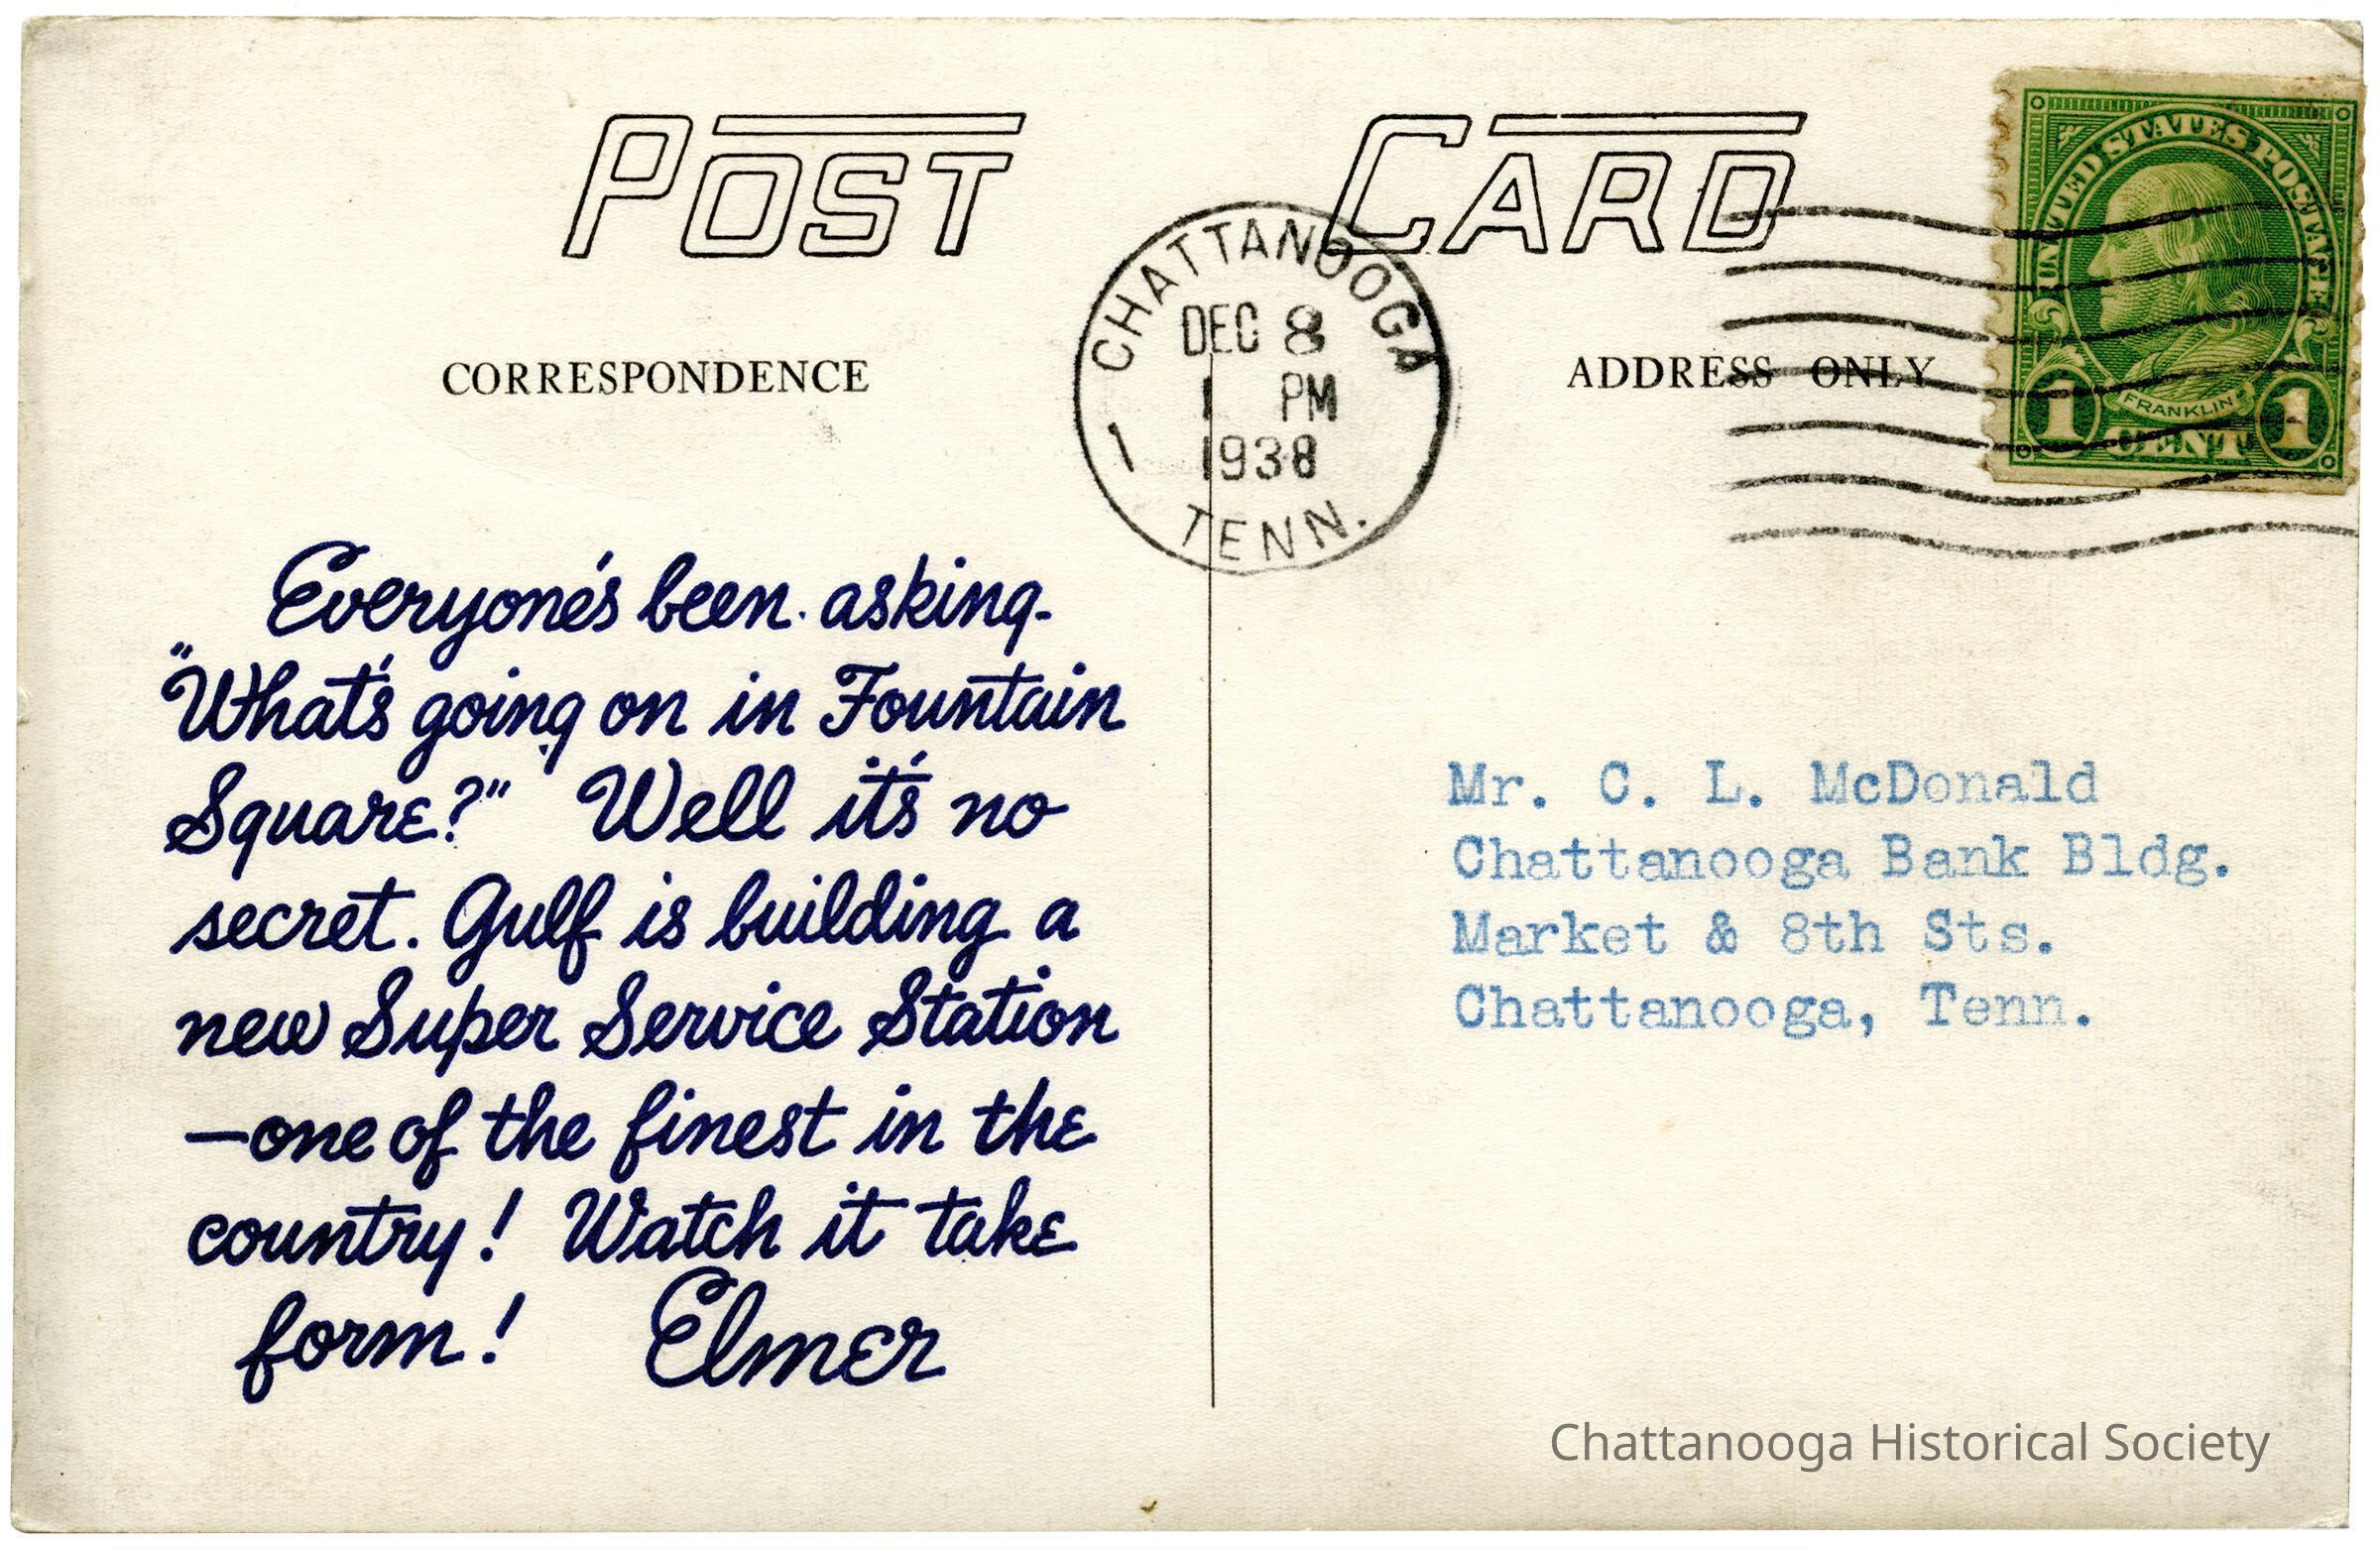 POST CARD
CORRESPONDENCE
ADDRESS ONLY
CHATTANOOGA
DEC 8
1 PM
1938
1
TENN.
UNITED STATES POSTAGE
FRANKLIN
1 CENT 1
Everyone's been asking-
"What's going on in Fountain
Square?" Well it's no
secret. Gulf is building a
new Super Service Station
—one of the finest in the
country! Watch it take
form! Elmer
Mr. C. L. McDonald
Chattanooga Bank Bldg.
Market & 8th Sts.
Chattanooga, Tenn.
Chattanooga Historical Society